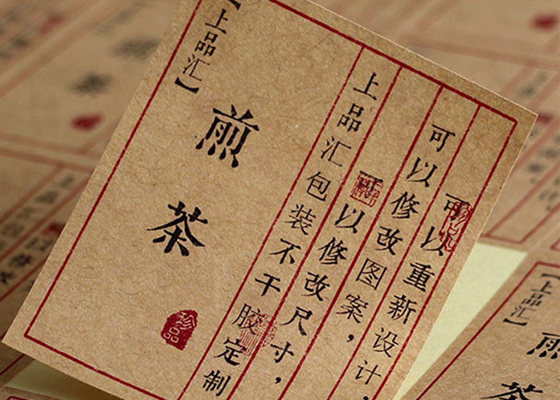 【上品汇】
煎茶
珍品
上品汇包装不干胶定制
可以修改尺寸，
可以修改图案，
可以重新设计，
【上品汇】
煎茶